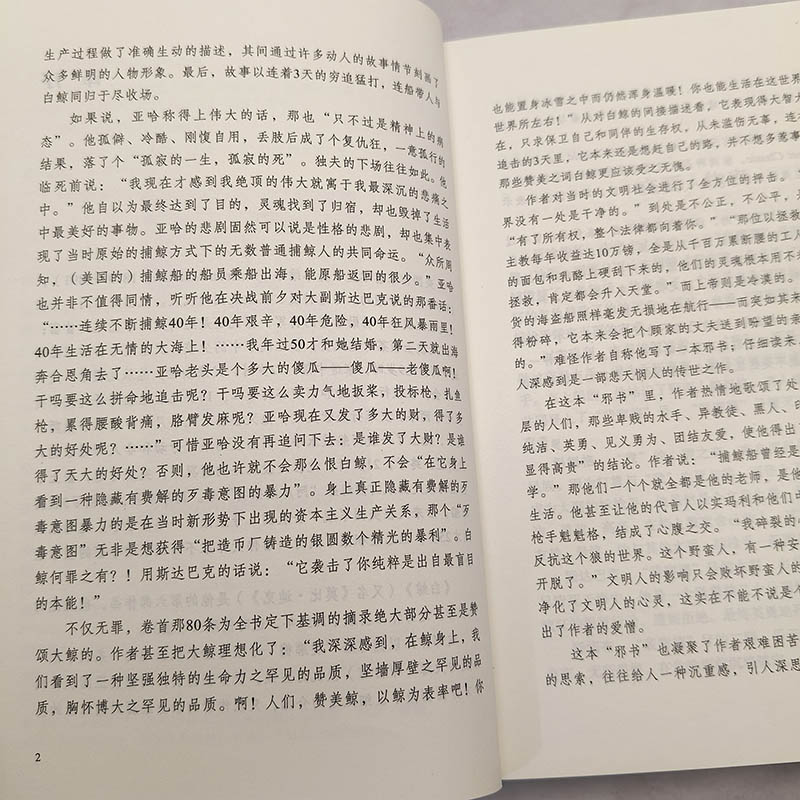 生产过程做了准确生动的描述，其间通过许多动人的故事情节刻画了
众多鲜明的人物形象。最后，故事以连着3天的穷追猛打，连船带人与
白鲸同归于尽收场。
如果说，亚哈称得上伟大的话，那也“只不过是精神上的病
态”。他孤僻、冷酷、刚愎自用，丢肢后成了个复仇狂，一意孤行的
结果，落了个“孤寂的一生，孤寂的死”。独夫的下场往往如此。他
临死前说：“我现在才感到我绝顶的伟大就寓于我最深沉的悲痛之
中。”他自以为最终达到了目的，灵魂找到了归宿，却也毁掉了生活
中最美好的事物。亚哈的悲剧固然可以说是性格的悲剧，却也集中表
现了当时原始的捕鲸方式下的无数普通捕鲸人的共同命运。“众所周
知，（美国的）捕鲸船的船员乘船出海，能原船返回的很少。”亚哈
也并非不值得同情，听听他在决战前夕对大副斯达巴克说的那番话：
“……连续不断捕鲸40年！40年艰辛，40年危险，40年狂风暴雨里！
40年生活在无情的大海上！……我年过50才和她结婚，第二天就出海
奔合恩角去了……亚哈老头是个多大的傻瓜——傻瓜——老傻瓜啊！
干吗要这么拼命地追击呢？干吗要这么卖力气地扳桨，投标枪，扎鱼
枪，累得腰酸背痛，胳臂发麻呢？亚哈现在又发了多大的财，得了多
大的好处呢？……”可惜亚哈没有再追问下去：是谁发了大财？是谁
得了天大的好处？否则，他也许就不会那么恨白鲸，不会“在它身上
看到一种隐藏有费解的歹毒意图的暴力”。身上真正隐藏有费解的歹
毒意图暴力的是在当时新形势下出现的资本主义生产关系，那个“歹
毒意图”无非是想获得“把造币厂铸造的银圆数个精光的暴利”。白
鲸何罪之有？！用斯达巴克的话说：“它袭击了你纯粹是出自最盲目
的本能！”
不仅无罪，卷首那80条为全书定下基调的摘录绝大部分甚至是赞
颂大鲸的。作者甚至把大鲸理想化了：“我深深感到，在鲸身上，我
们看到了一种坚强独特的生命力之罕见的品质，坚墙厚壁之罕见的品
质，胸怀博大之罕见的品质。啊！人们，赞美鲸，以鲸为表率吧！你
2
也能置身冰雪之中而仍然浑身温暖！你也能生活在这世界
世界所左右！”从对白鲸的间接描述看，它表现得大智大
在，只求保卫自己和同伴的生存权，从未滥伤无事，连
追击的3天里，它本来还是想赶自己的路，并不想多惹事
那些赞美之词白鲸更应该受之无愧。
作者对当时的文明社会进行了全方位的抨击。“
界没有一处是干净的。”到处是不公正，不公平，
“有了所有权，整个法律都向着你。”“那位以拯救
主教每年收益达10万镑，全是从千百万累断腰的工人
的面包和乳酪上硬刮下来的，他们的灵魂根本用不
拯救，肯定都会升入天堂。”而上帝则是冷漠的。
货的海盗船照样毫发无损地在航行——而突如其来
得粉碎，它本来会把个顾家的丈夫送到盼望的亲
的。”难怪作者自称他写了一本邪书；仔细读来，
人深感到是一部悲天悯人的传世之作。
在这本“邪书”里，作者热情地歌颂了处
层的人们，那些卑贱的水手、异教徒、黑人、印
纯洁、英勇、见义勇为、团结友爱，使他得出了
显得高贵”的结论。作者说：“捕鲸船曾经是
学。”那他们一个个就全都是他的老师，是他
生活。他甚至让他的代言人以实玛利和他们中
枪手魁魁格，结成了心腹之交。“我碎裂的
反抗这个狼的世界。这个野蛮人，有一种安
开脱了。”文明人的影响只会败坏野蛮人的
净化了文明人的心灵，这实在不能不说是个
出了作者的爱憎。
这本“邪书”也凝聚了作者艰难困苦
的思索，往往给人一种沉重感，引人深思